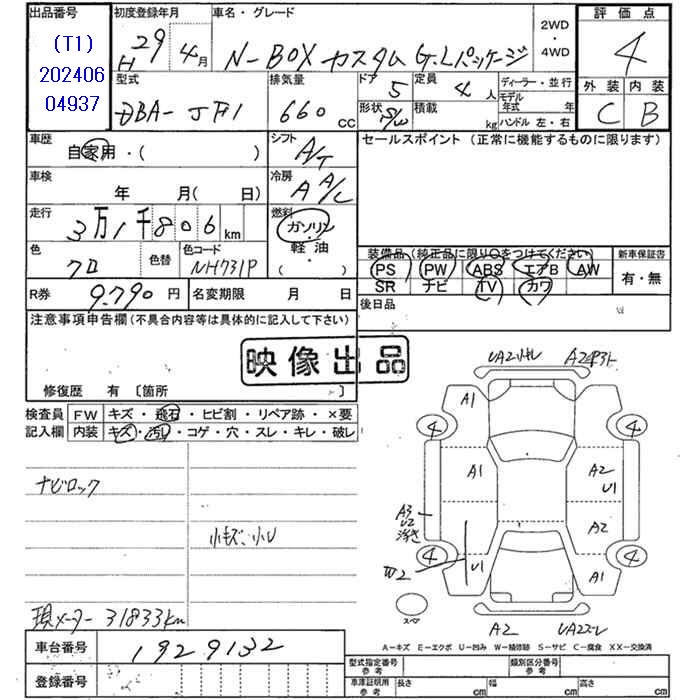 出品番号 初度登録年月 車名・グレード 2WD・4WD 評価点
(T1) 202406 04937
H 29年 4月 N-BOX カスタム G・Lパッケージ 4
型式 排気量 ドア 定員 ディーラー・並行 外装 内装
DBA-JF1 660 CC 5 4人 モデル年式 年 C B
形状 S/W 積載 kg ハンドル 左・右
車歴 自家用・( ) シフト A/T セールスポイント (正常に機能するものに限ります)
車検 年 月(日) 冷房 A A/C
走行 3万1千806 km 燃料 ガソリン・軽油・( )
色 クロ 色替 色コード NH731P
装備品(純正品に限り○をつけてください) 新車保証書
PS PW ABS エアB AW 有・無
SR ナビ TV カワ
R券 9,790円 名変期限 月 日 後日品
注意事項申告欄(不具合内容等は具体的に記入して下さい)
映像出品
修復歴 有〔箇所 〕
検査員 FW キズ・飛石・ヒビ割・リペア跡・×要
記入欄 内装 キズ・汚レ・コゲ・穴・スレ・キレ・破レ
ナビロック
小キズ、小U
現メーター 31833km
A1
4 4
A1 A2 U1
A3 U2
A2
W2 U1 A1
4 4
スペア
A2
A-キズ E-エクボ U-凹み W-補修跡 S-サビ C-腐食 XX-交換済
車台番号 1929132
登録番号
型式指定番号 参考 類別区分番号 参考
車庫証明用 参考 長さ cm 幅 cm 高さ cm